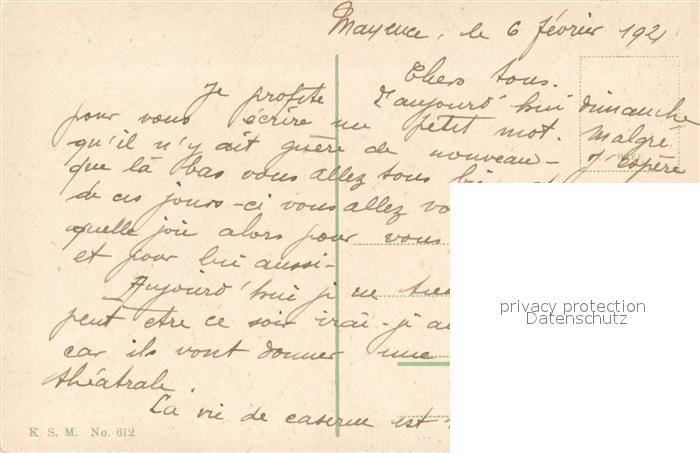 Mayence, le 6 février 1921
Chers tous.
Je profite d'aujourd'hui dimanche
pour vous écrire un petit mot. Malgré
qu'il n'y ait guère de nouveau - J'espère
que là bas vous allez tous
de ces jours-ci vous allez
quelle joie alors pour vous
et pour lui aussi -
Aujourd'hui je ne
peut etre ce soir irai-je au
car ils vont donner une
théâtrale.
La vie de caserne est
K. S. M. No. 612
privacy protection
Datenschutz